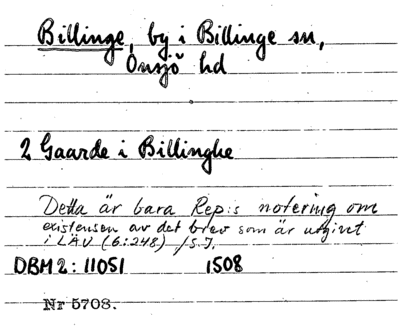 Billinge, by i Billinge sn,
Onsjö hd
2 Gaarde i Billinghe
Detta är bara Rep:s notering om
existensen av det brev som är utgivet
i LÄU (6:248) /S.J.
DBM 2: 11051 1508
Nr 5708.